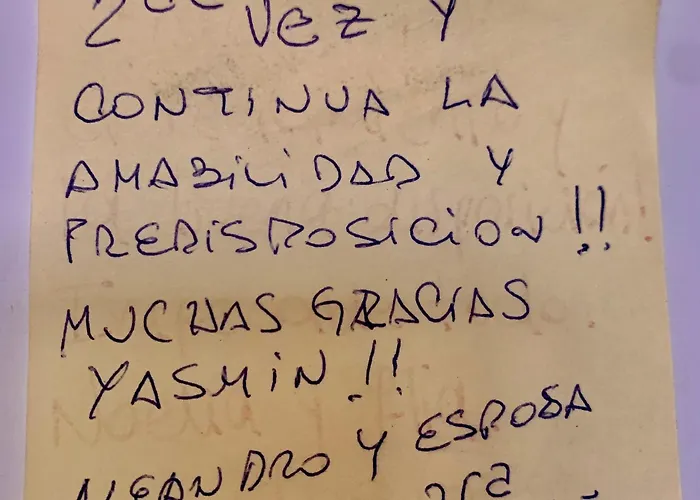 2da VEZ Y
CONTINUA LA
AMABILIDAD Y
PREDISPOSICION !!
MUCHAS GRACIAS
YASMIN !!
ALEANDRO Y ESPOSA